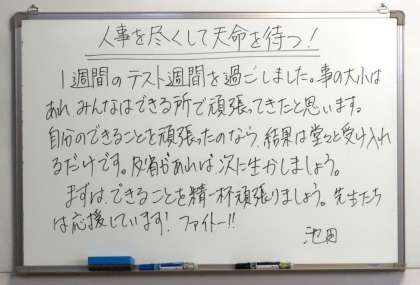 人事を尽くして天命を待つ!
1週間のテスト週間を過ごしました。事の大小は
あれ みんなはできる所で頑張ってきたと思います。
自分のできることを頑張ったのなら、結果は堂々と受け入れ
るだけです。反省があれば、次に生かしましょう。
まずは、できることを精一杯頑張りましょう。先生たち
は応援しています! ファイトー!!
池田